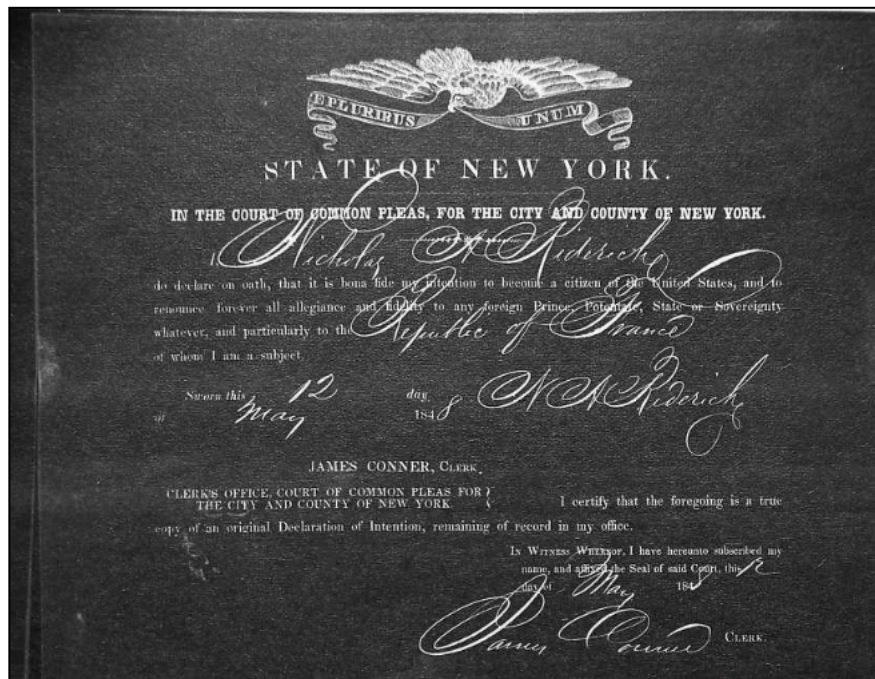 E PLURIBUS UNUM
STATE OF NEW YORK.
IN THE COURT OF COMMON PLEAS, FOR THE CITY AND COUNTY OF NEW YORK.
I, Nicholas A Riderich
do declare on oath, that it is bona fide my intention to become a citizen of the United States, and to
renounce forever all allegiance and fidelity to any foreign Prince, Potentate, State or Sovereignty
whatever, and particularly to the Republic of France
of whom I am a subject.
Sworn this 12 day N A Riderich
of May 1848
JAMES CONNER, CLERK.
CLERK'S OFFICE, COURT OF COMMON PLEAS FOR
THE CITY AND COUNTY OF NEW YORK. I certify that the foregoing is a true
copy of an original Declaration of Intention, remaining of record in my office.
IN WITNESS WHEREOF, I have hereunto subscribed my
name, and affixed the Seal of said Court, this 12
day of May 1848
James Conner CLERK.